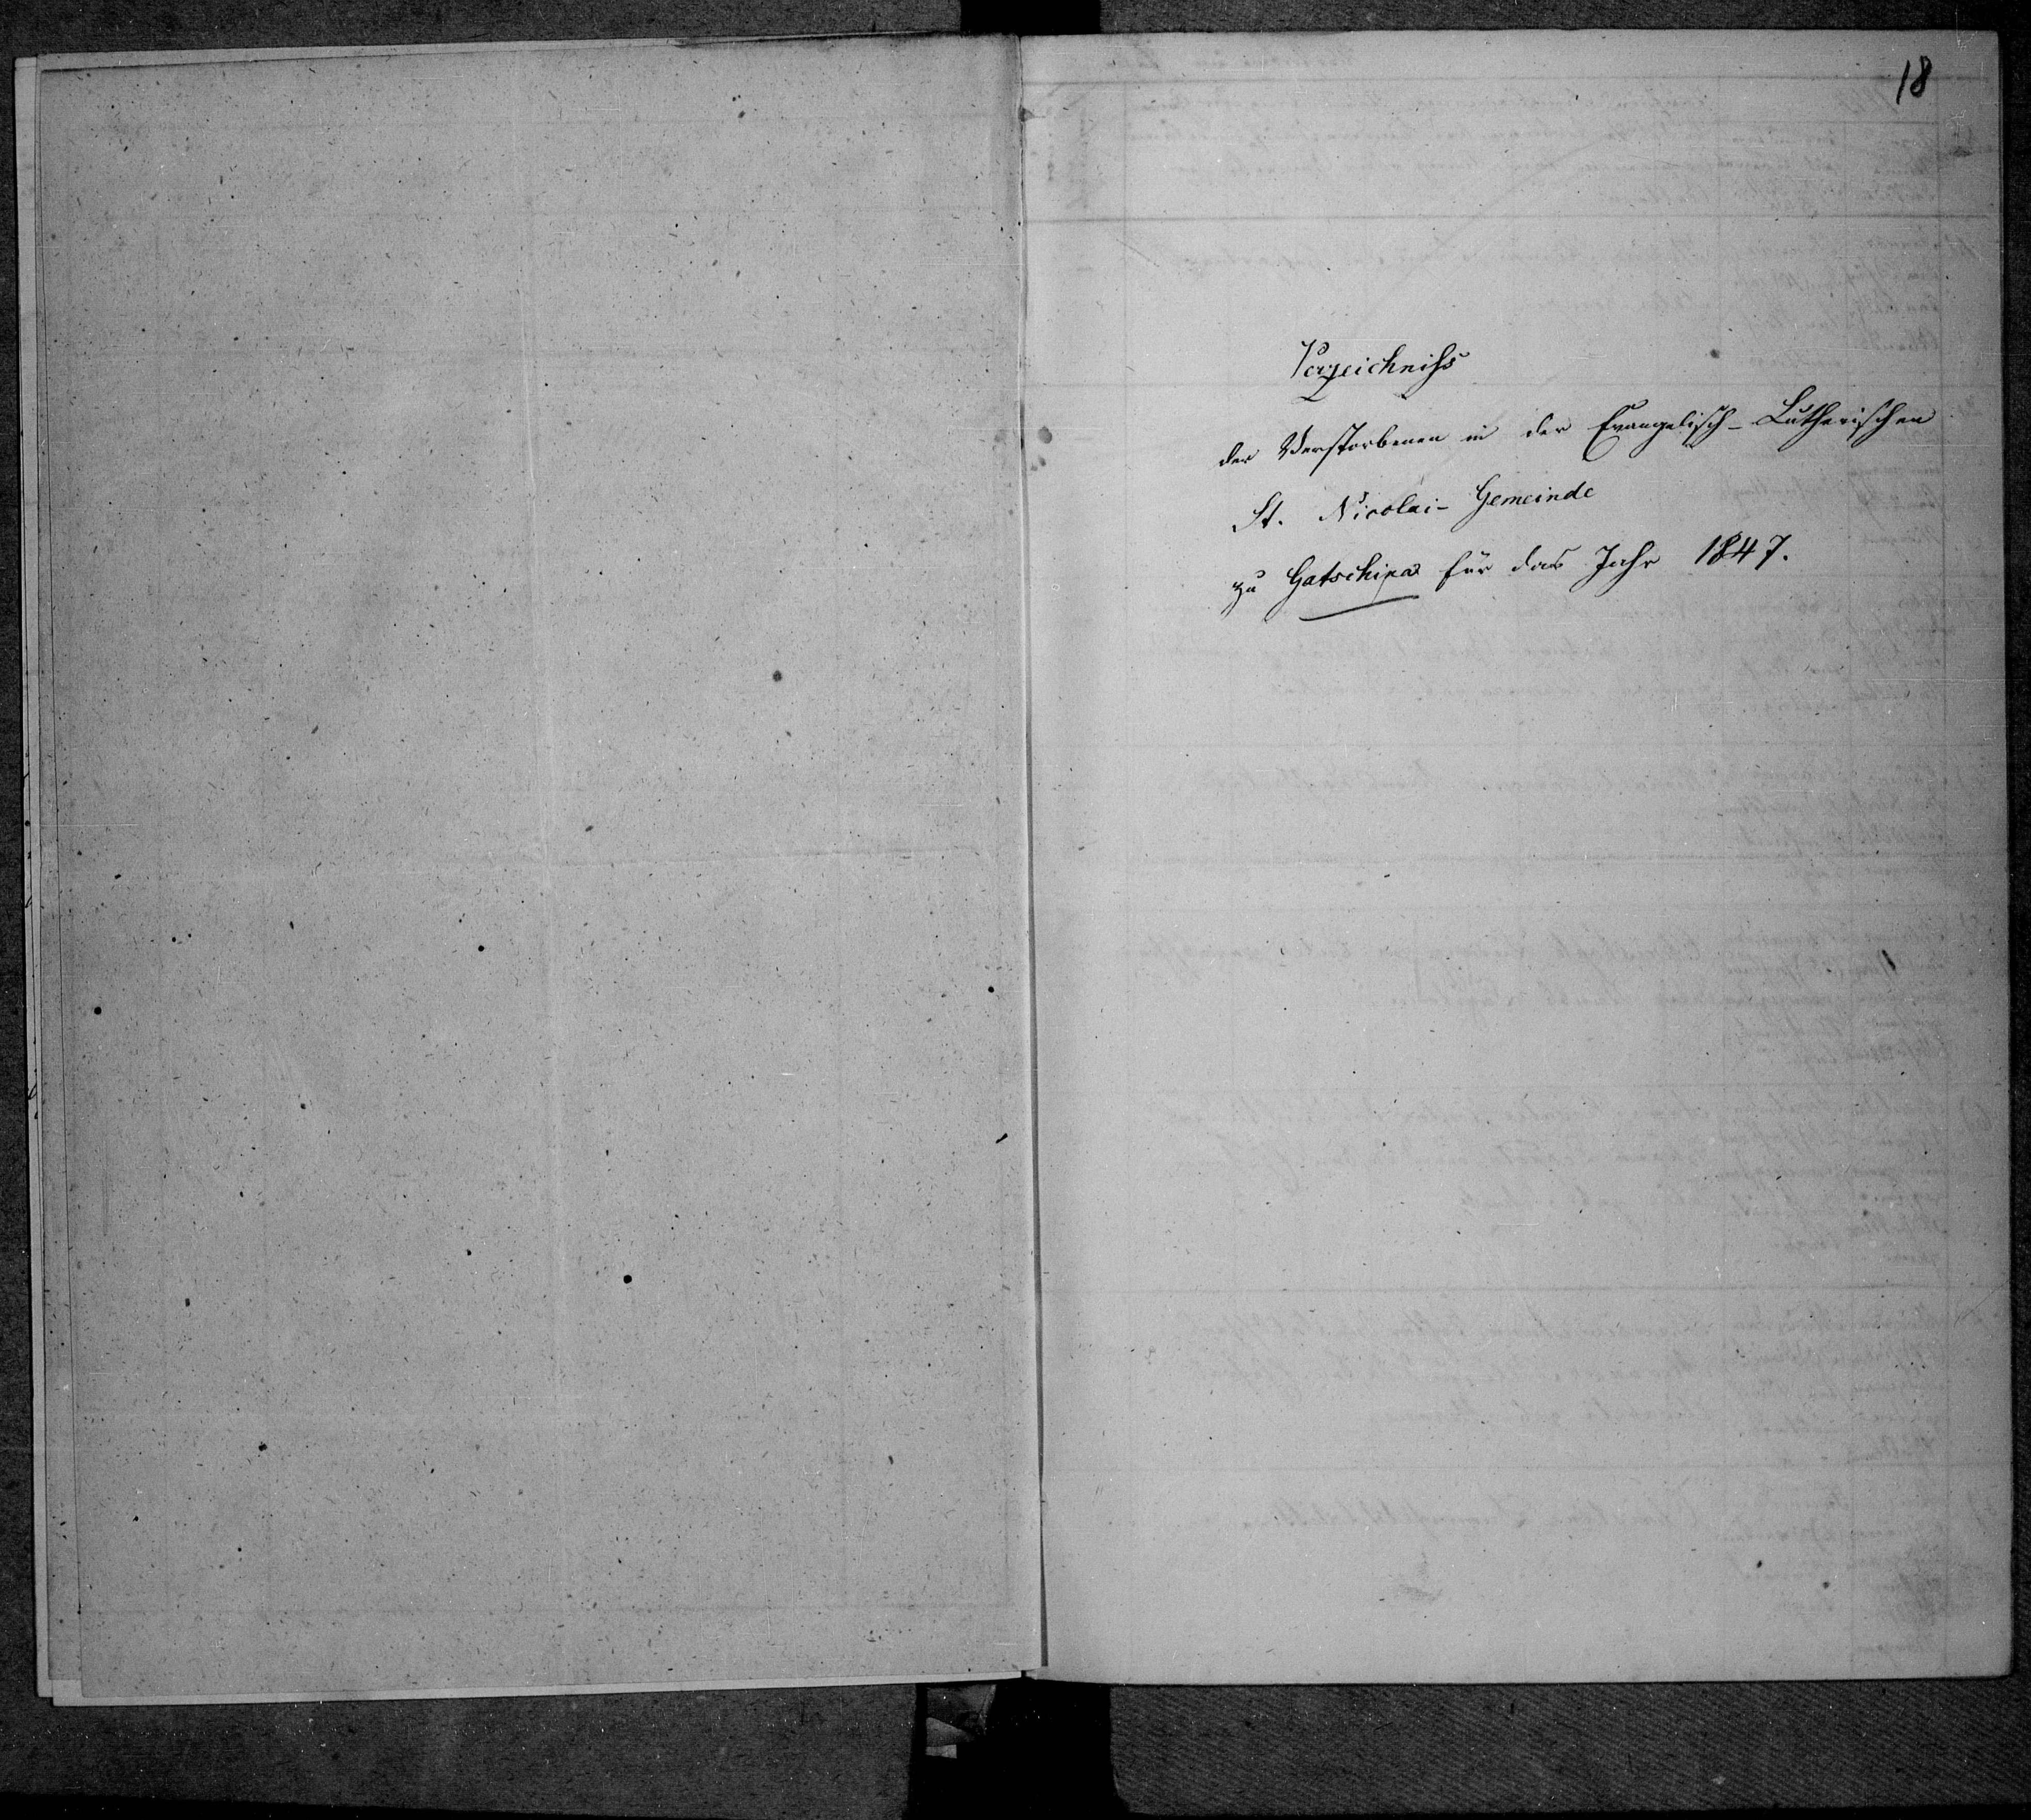 18
Verzeichniss
der Verstorbenen in der Evangelisch-Lutherischen
St. Nicolai-Gemeinde
zu Gatschina für das Jahr 1847.